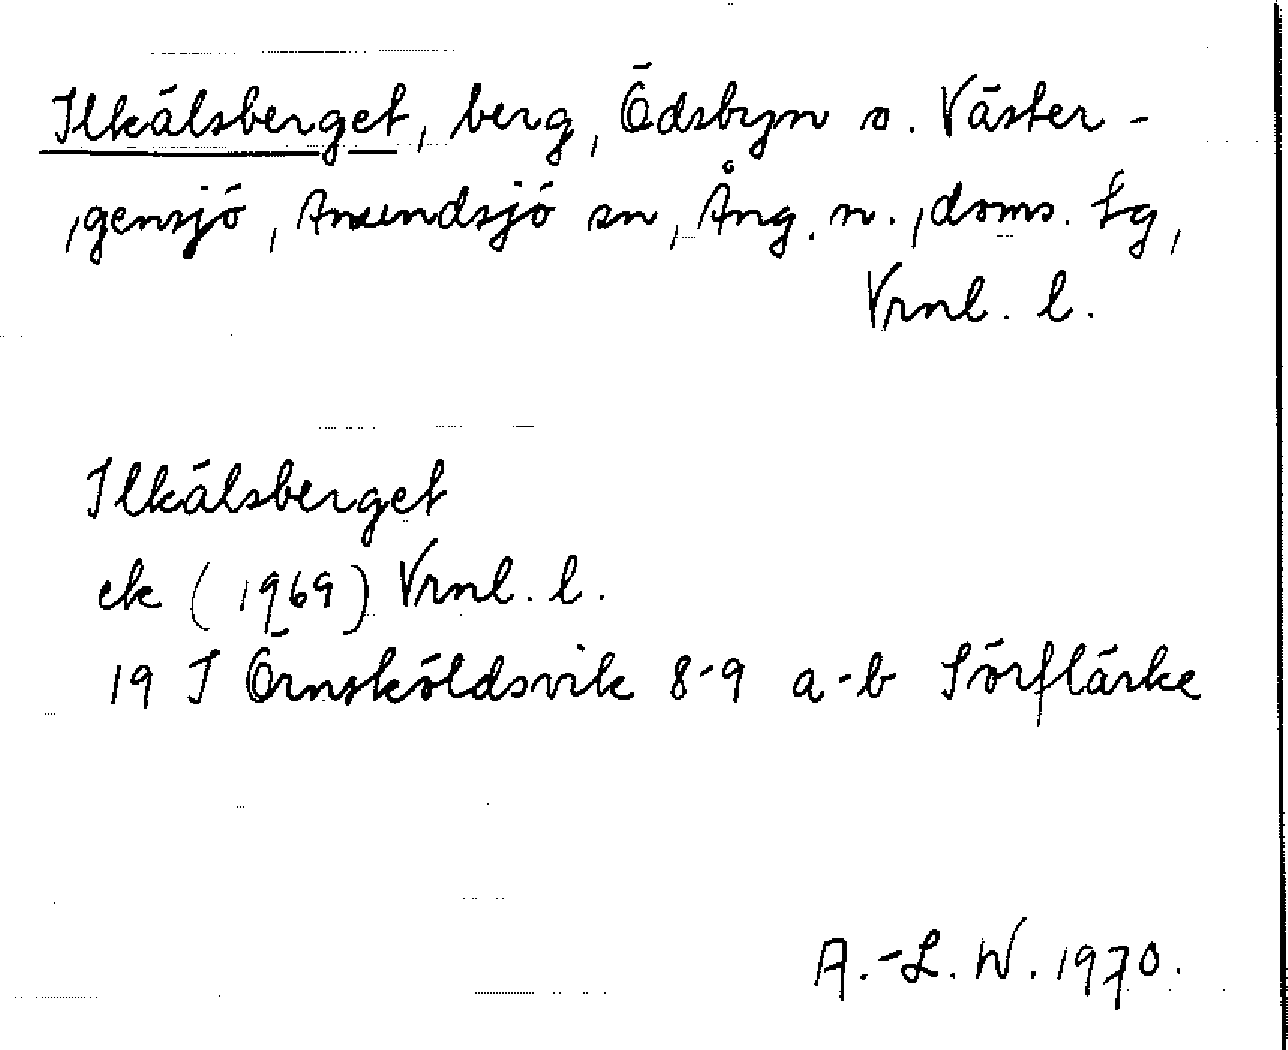 Ilkälsberget, berg, Ödsbyn o. Väster-
gensjö, Anundsjö sn, Ång. n., doms. lg,
Vrnl. l.
Ilkälsberget
ek (1969) Vrnl. l.
19 J Örnsköldsvik 8-9 a-b Sörflärke
A.-L. W. 1970.